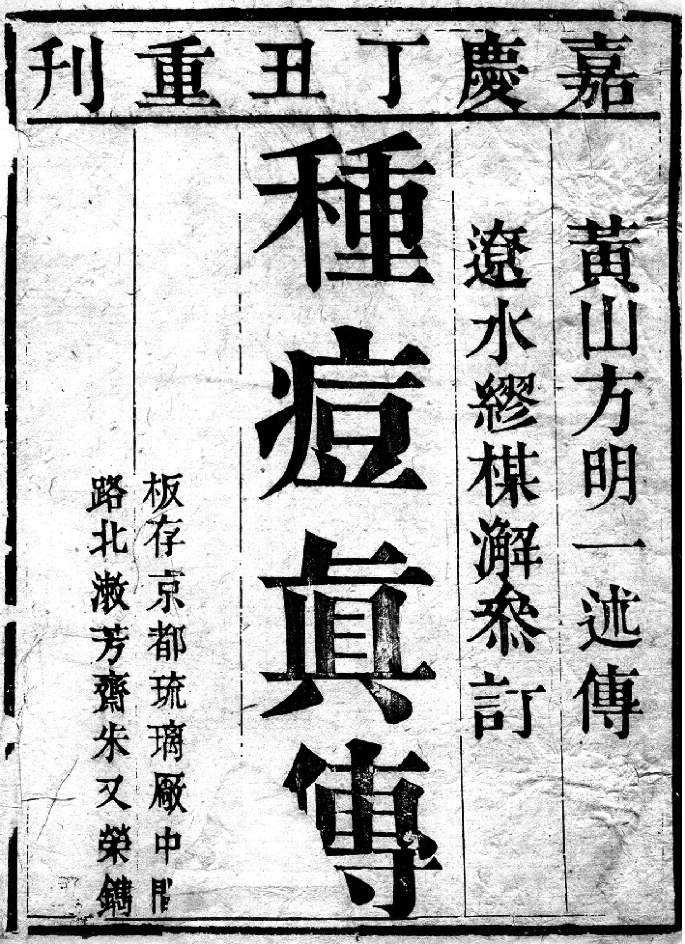 嘉慶丁丑重刊
黃山方明一述傳
遼水繆楳澥叅訂
種痘眞傳
板存京都琉璃厰中間
路北漱芳齋朱又榮鐫